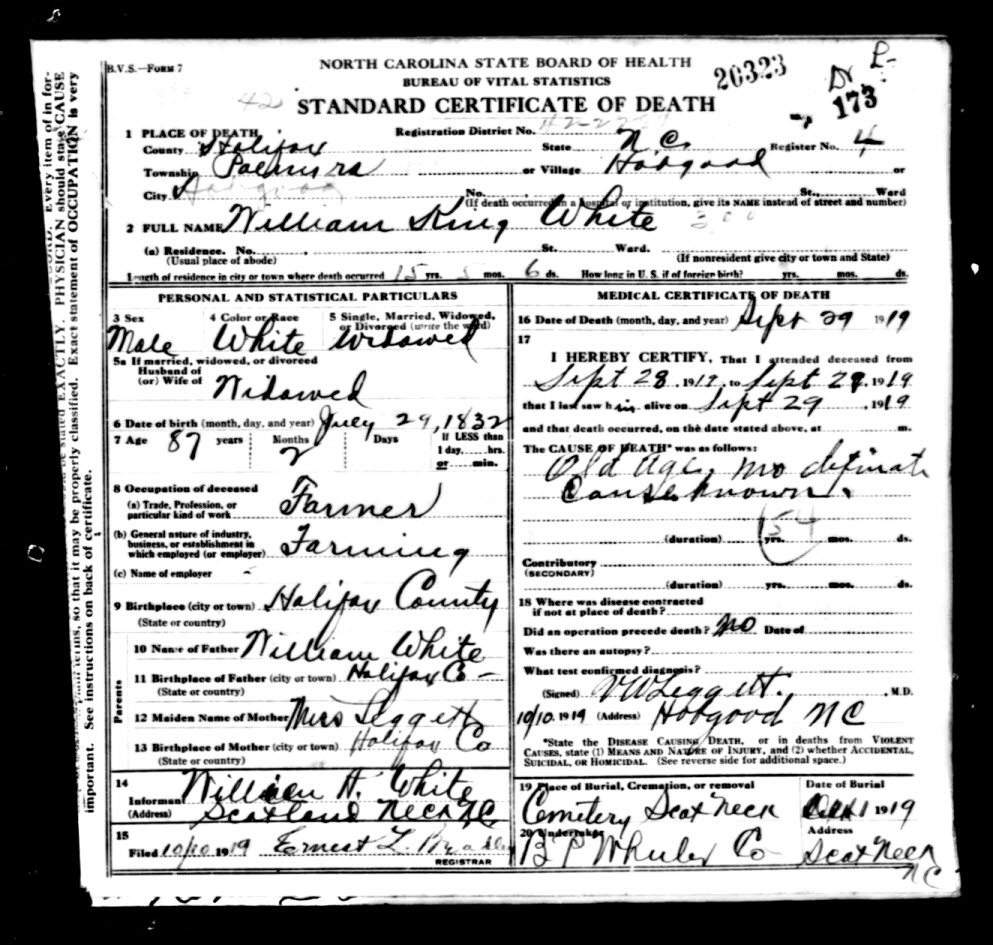 B.V.S.—Form 7
NORTH CAROLINA STATE BOARD OF HEALTH
BUREAU OF VITAL STATISTICS
42 STANDARD CERTIFICATE OF DEATH
20323
Dr
173
1 PLACE OF DEATH, Registration District No.
County Halifax State N.C. Register No. 4
Township Palmyra or Village Hobgood or
City Hobgood No. St., Ward
(If death occurred in a hospital or institution, give its NAME instead of street and number)
2 FULL NAME William King White
(a) Residence. No. St. Ward.
(Usual place of abode) (If nonresident give city or town and State)
Length of residence in city or town where death occurred 15 yrs. 5 mos. 6 ds. How long in U. S. if of foreign birth? yrs. mos. ds.
PERSONAL AND STATISTICAL PARTICULARS
3 Sex 4 Color or Race 5 Single, Married, Widowed,
or Divorced (write the word)
Male White Widowed
5a If married, widowed, or divorced
Husband of
(or) Wife of Widowed
6 Date of birth (month, day, and year) July 29, 1832
7 Age 87 years Months 2 Days If LESS than
1 day......hrs.
or ......min.
8 Occupation of deceased
(a) Trade, Profession, or
particular kind of work Farmer
(b) General nature of industry,
business, or establishment in
which employed (or employer) Farming
(c) Name of employer -
9 Birthplace (city or town) Halifax County
(State or country)
Parents
10 Name of Father William White
11 Birthplace of Father (city or town) Halifax Co -
(State or country)
12 Maiden Name of Mother Miss Leggett
13 Birthplace of Mother (city or town) Halifax Co
(State or country)
14
Informant William H. White
(Address) Scotland Neck NC
15
Filed 10/10, 1919 Ernest L.
REGISTRAR
MEDICAL CERTIFICATE OF DEATH
16 Date of Death (month, day, and year) Sept 29 1919
17
I HEREBY CERTIFY, That I attended deceased from
Sept 28, 1919, to Sept 29, 1919
that I last saw him alive on Sept 29, 1919
and that death occurred, on the date stated above, at m.
The CAUSE OF DEATH* was as follows:
Old Age, no definate
Cause known.
154
(duration) yrs. mos. ds.
Contributory
(SECONDARY)
(duration) yrs. mos. ds.
18 Where was disease contracted
if not at place of death?
Did an operation precede death? No Date of
Was there an autopsy?
What test confirmed diagnosis?
(Signed) Leggett, M.D.
10/10. 1919 (Address) Hobgood NC
*State the DISEASE CAUSING DEATH, or in deaths from VIOLENT
CAUSES, state (1) MEANS AND NATURE OF INJURY, and (2) whether ACCIDENTAL,
SUICIDAL, OR HOMICIDAL. (See reverse side for additional space.)
19 Place of Burial, Cremation, or removal Date of Burial
Cemetery Scot Neck 1919
20 Undertaker Address
Co Scot Neck
NC
Every item of in-
PHYSICIAN should state CAUSE
Exact statement of OCCUPATION is very
stated EXACTLY.
terms, so that it may be properly classified.
important. See instructions on back of certificate.